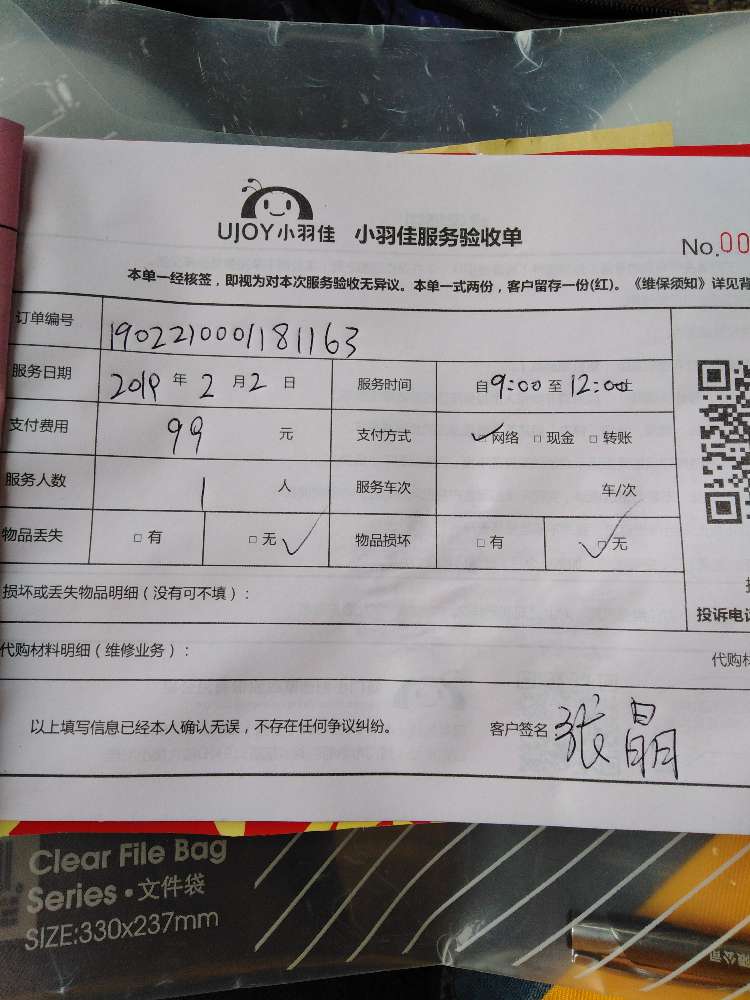 UJOY小羽佳 小羽佳服务验收单
No.00
本单一经核签，即视为对本次服务验收无异议。本单一式两份，客户留存一份(红)。《维保须知》详见背
订单编号 1902210001181163
服务日期 2019 年 2 月 2 日 服务时间 自 9:00 至 12:00 止
支付费用 99 元 支付方式 ✓□网络 □现金 □转账
服务人数 1 人 服务车次 车/次
物品丢失 □有 □无✓ 物品损坏 □有 ✓□无
损坏或丢失物品明细（没有可不填）：
投诉电话
代购材料明细（维修业务）： 代购材
以上填写信息已经本人确认无误，不存在任何争议纠纷。 客户签名 张晶
Clear File Bag
Series·文件袋
SIZE:330x237mm
限公司